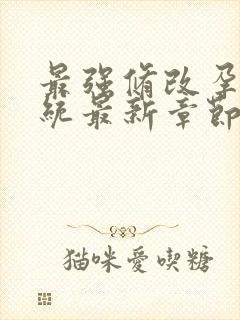 最强脩改孕
统最新章節
猫咪愛喫糖